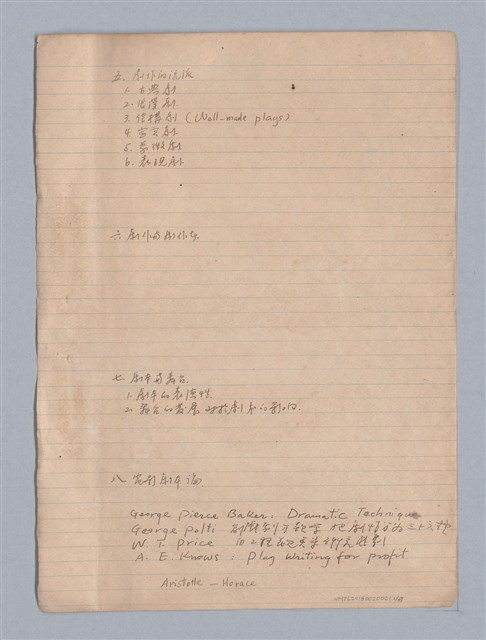 五. 劇作的流派
1. 古典劇
2. 浪漫劇
3. 佳構劇 (Well-made plays)
4. 寫實劇
5. 象徵劇
6. 表現劇
六 劇作與劇作家
七 劇本與舞台
1. 劇本的表演性
2. 舞台的發展對於劇本的影响
八 劇本論
George Pierce Baker. Dramatic Technique
George Polti 把劇情分為三十六種
W. T. Price
A. E. Krows. Play Writing for profit
Aristotle - Horace